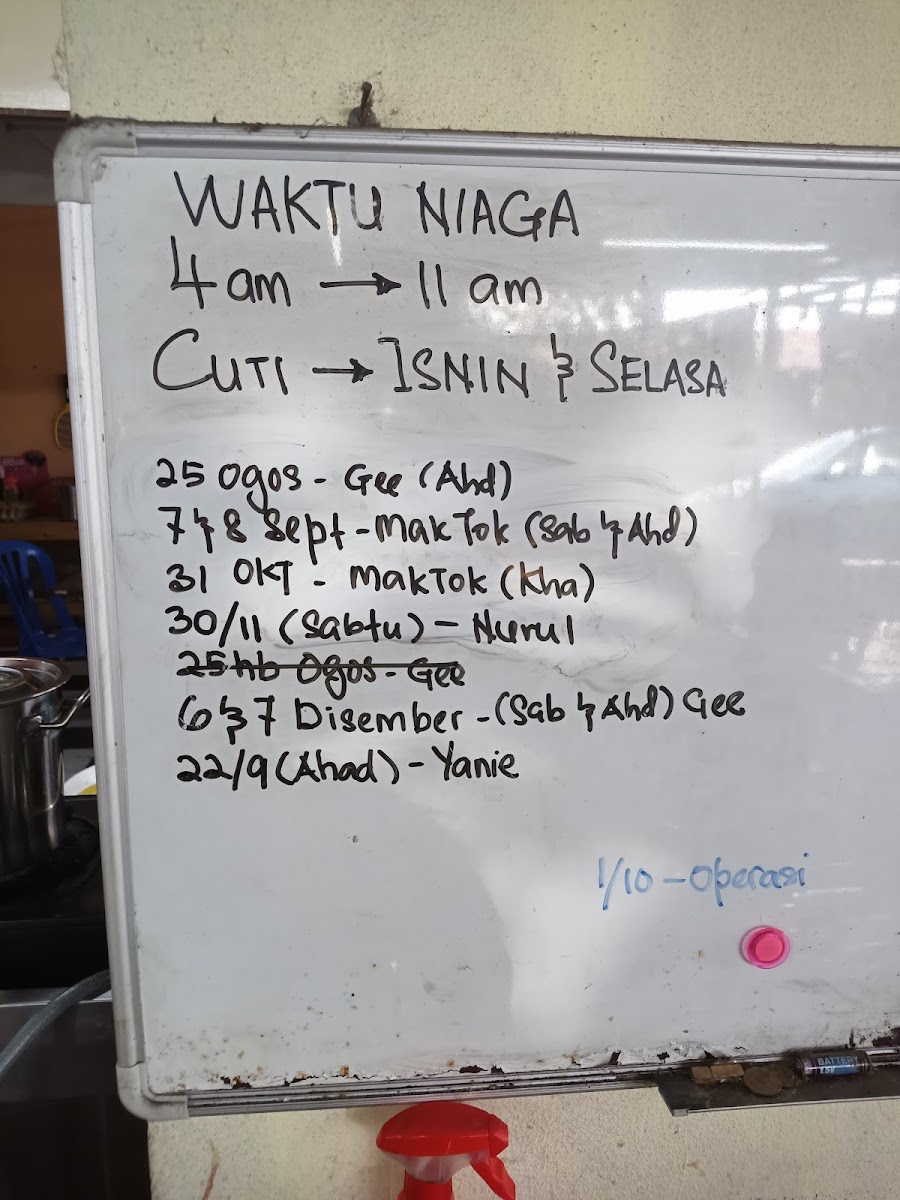 WAKTU NIAGA
4 am → 11 am
CUTI → ISNIN & SELASA
25 Ogos - Gee (Ahd)
7 & 8 Sept - Mak Tok (Sab & Ahd)
31 OKT - Mak Tok (Kha)
30/11 (Sabtu) - Nurul
25hb Ogos - Gee
6 & 7 Disember - (Sab & Ahd) Gee
22/9 (Ahad) - Yanie
1/10 - Operasi
BATTERY